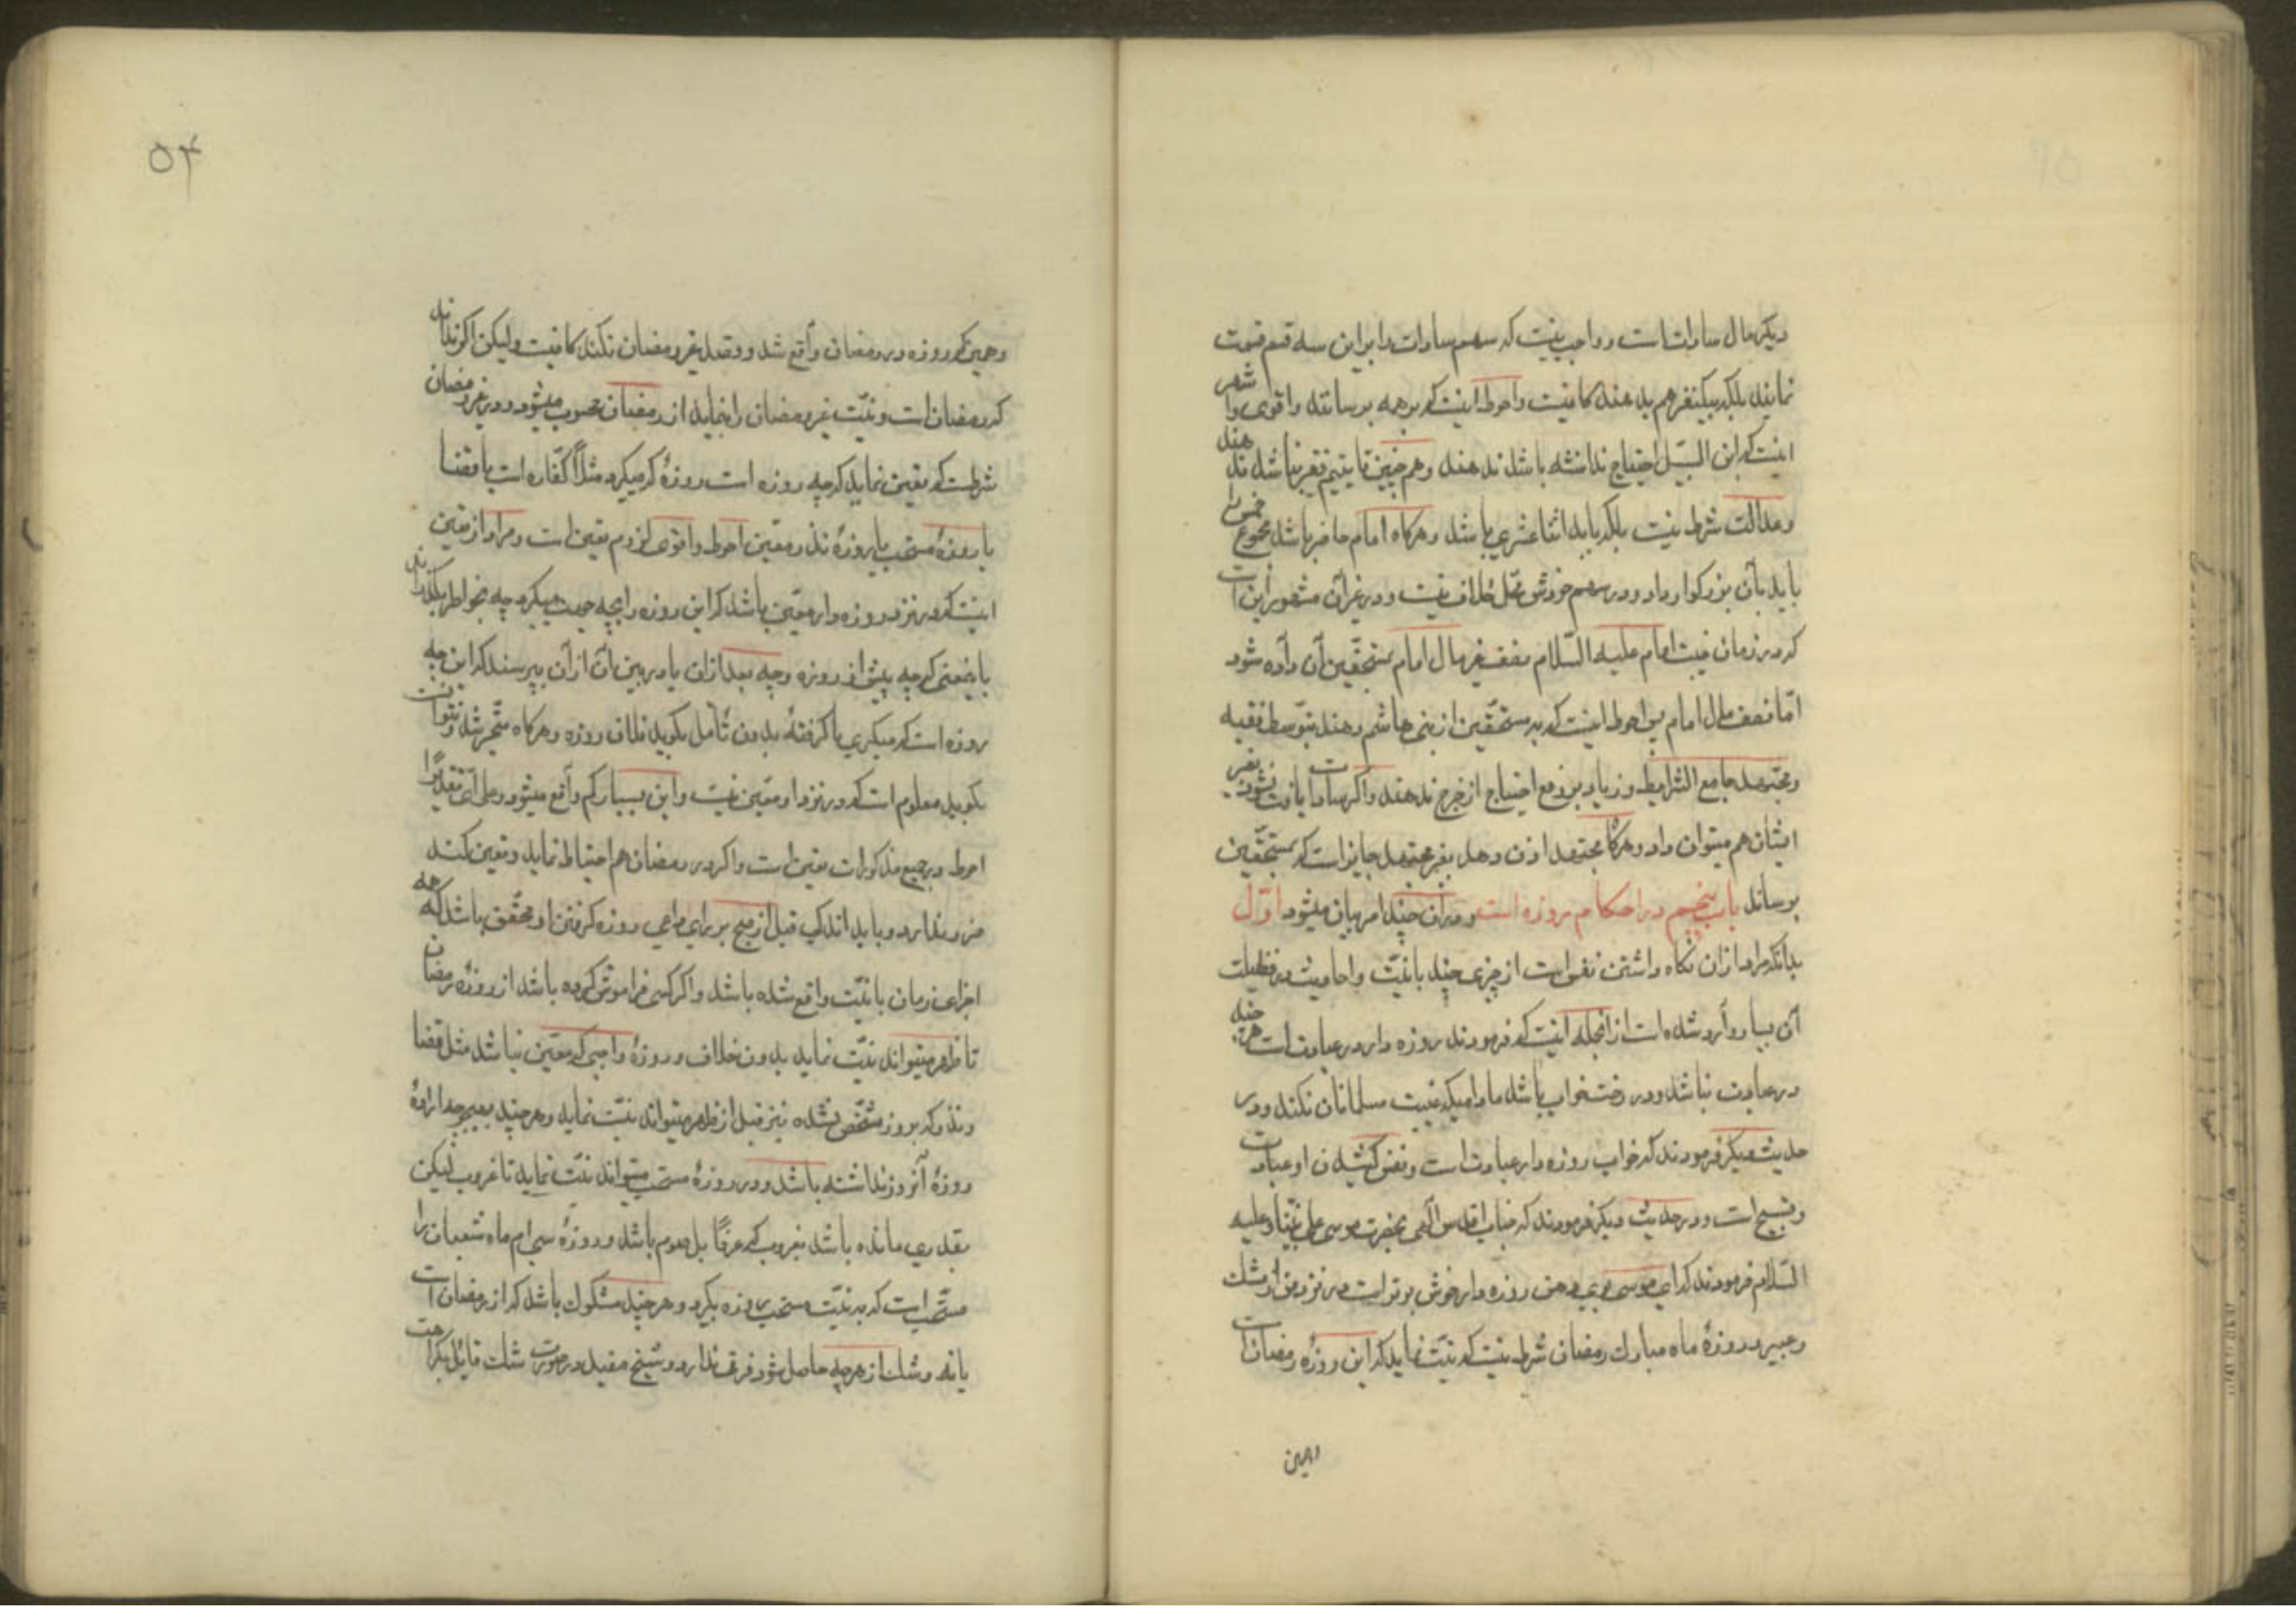 دیگر مال ساداتست و واجب نیست که سهم سادات را بر این سه قسم قسمت
نمایند بلکه بیکنفر هم بدهند کافیست و احوط اینست که بر همه برسانند و اقوی و اشهر
اینست که ابن السبیل احتیاج نداشته باشد ندهند و همچنین تا یتیم فقیر نباشد ندهند
و عدالت شرط نیست بلکه باید اثناعشری باشد و هرگاه امام حاضر باشد مجموع خمس را
باید بآن بزرگوار داد و در سهم خودش محل خلاف نیست و در غیر آن مشهور این است
که در زمان غیبت امام علیه السّلام نصف غیر مال امام بمستحقین آن داده شود
امّا نصف مال امام پس احوط اینست که بمستحقّین از بنی هاشم دهند بتوسط فقیه
و مجتهد جامع الشرایط و زیاد بر رفع احتیاج از خرج ندهند و اگر سادات یافت نشود بغیر
ایشان هم میتوان داد و هرگاه مجتهد اذن دهد بغیر مجتهد جایز است که بمستحقّین
برساند باب پنجم در احکام روزه است و در آن چند امر بیان میشود اوّل
بدانکه مراد از آن نگاه داشتن نفس است از چیزی چند با نیّت و احادیث در فضیلت
آن بسیار وارد شده است از انجمله اینست که فرمودند روزه دار در عبادت است هر چند
در عبادت نباشد و در رخت خواب باشد مادامیکه غیبت مسلمانان نکند و در
حدیث دیگر فرمودند که خواب روزه دار عبادت است و نفس کشیدن او عبادت
و تسبیح است و در حدیث دیگر فرمودند که جناب اقدس الهی بحضرت موسی علی نبیّنا و علیه
السّلام فرمودند که ای موسی بوی دهن روزه دار خوش بوتر است در نزد من از مشک
و عبیر و در روزهٔ ماه مبارک رمضان شرط نیست که نیّت نماید که این روزه رمضان است
و همین
۵۴
و همین که روزه در رمضان واقع شد و قصد غیر رمضان نکند کافیست و لیکن اگر نداند
که رمضان است و نیّت غیر رمضان را بنماید از رمضان محسوب میشود و در غیر رمضان
شرطست که تعیین نماید که چه روزه است روزهٔ که میگیرد مثلاً کفّاره است یا قضا
یا روزهٔ مستحب یا روزهٔ نذر و معیّن احوط و اقوی لزوم تعیین است و مراد از تعیین
اینست که در نزد روزه دار معیّن باشد که این روزه را بچه جهت میگیرد چه بخواطر بگذراند
باینمعنی که چه پیش از روزه و چه بعد از آن یا در بین آن از آن بپرسند که این چه
روزه است که میگیری یا گرفتهٔ بدون تأمل بگوید فلان روزه و هرگاه متحیّر شد و نتوانست
بگوید معلوم است که در نزد او معیّن نیست و این بسیار کم واقع میشود و علی ای تقدیراً
احوط در جمیع مذکورات تعیین است و اگر در رمضان هم احتیاط نماید و تعیین کند
ضرر ندارد و باید اندکی قبل از صبح روزه گرفتن او محقّق باشد که همه
اجزای زمان با نیّت واقع شده باشد و اگر کسی فراموش کرده باشد از روزه رمضان
تا ظهر میتواند نیّت نماید بدون خلاف و روزهٔ واجبی که معیّن نباشد مثل قضا
و نذر که بروز مشخّص نشده نیز قبل از ظهر میتواند نیّت نماید و هر چند بهیچوجه ارادهٔ
روزهٔ آنروز نداشته باشد و در روزهٔ مستحب میتواند نیّت نماید تا غروب لیکن
بقدری مانده باشد بغروب که عرفاً باشد و روزهٔ سی ام ماه شعبان را
مستحّب است که به نیّت مستحب روزه بگیرد و هر چند مشکوک باشد که از رمضان است
یا نه و شک از هر چه حاصل شود فرق ندارد و شیخ مفید در صورت شک قایل بکراهت